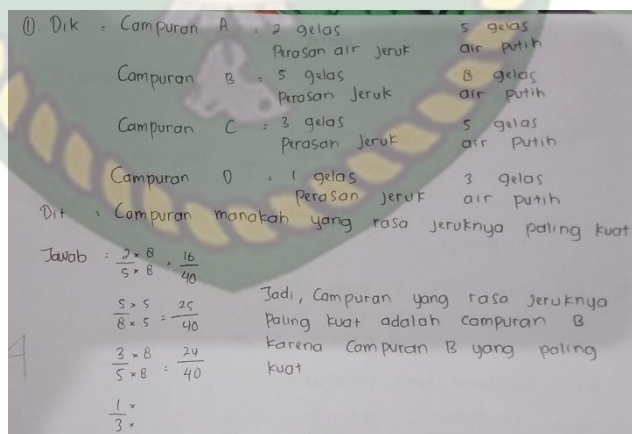 ①. Dik : Campuran A : 2 gelas 5 gelas
Perasan air jeruk air putih
Campuran B : 5 gelas 8 gelas
Perasan Jeruk air putih
Campuran C : 3 gelas 5 gelas
Perasan Jeruk air putih
Campuran D : 1 gelas 3 gelas
Perasan Jeruk air putih
Dit : Campuran manakah yang rasa jeruknya paling kuat
Jawab : 2 × 8 / 5 × 8 = 16 / 40
5 × 5 / 8 × 5 = 25 / 40
3 × 8 / 5 × 8 = 24 / 40
1 × / 3 ×
Jadi, Campuran yang rasa jeruknya
Paling kuat adalah campuran B
karena Campuran B yang paling
kuat
4